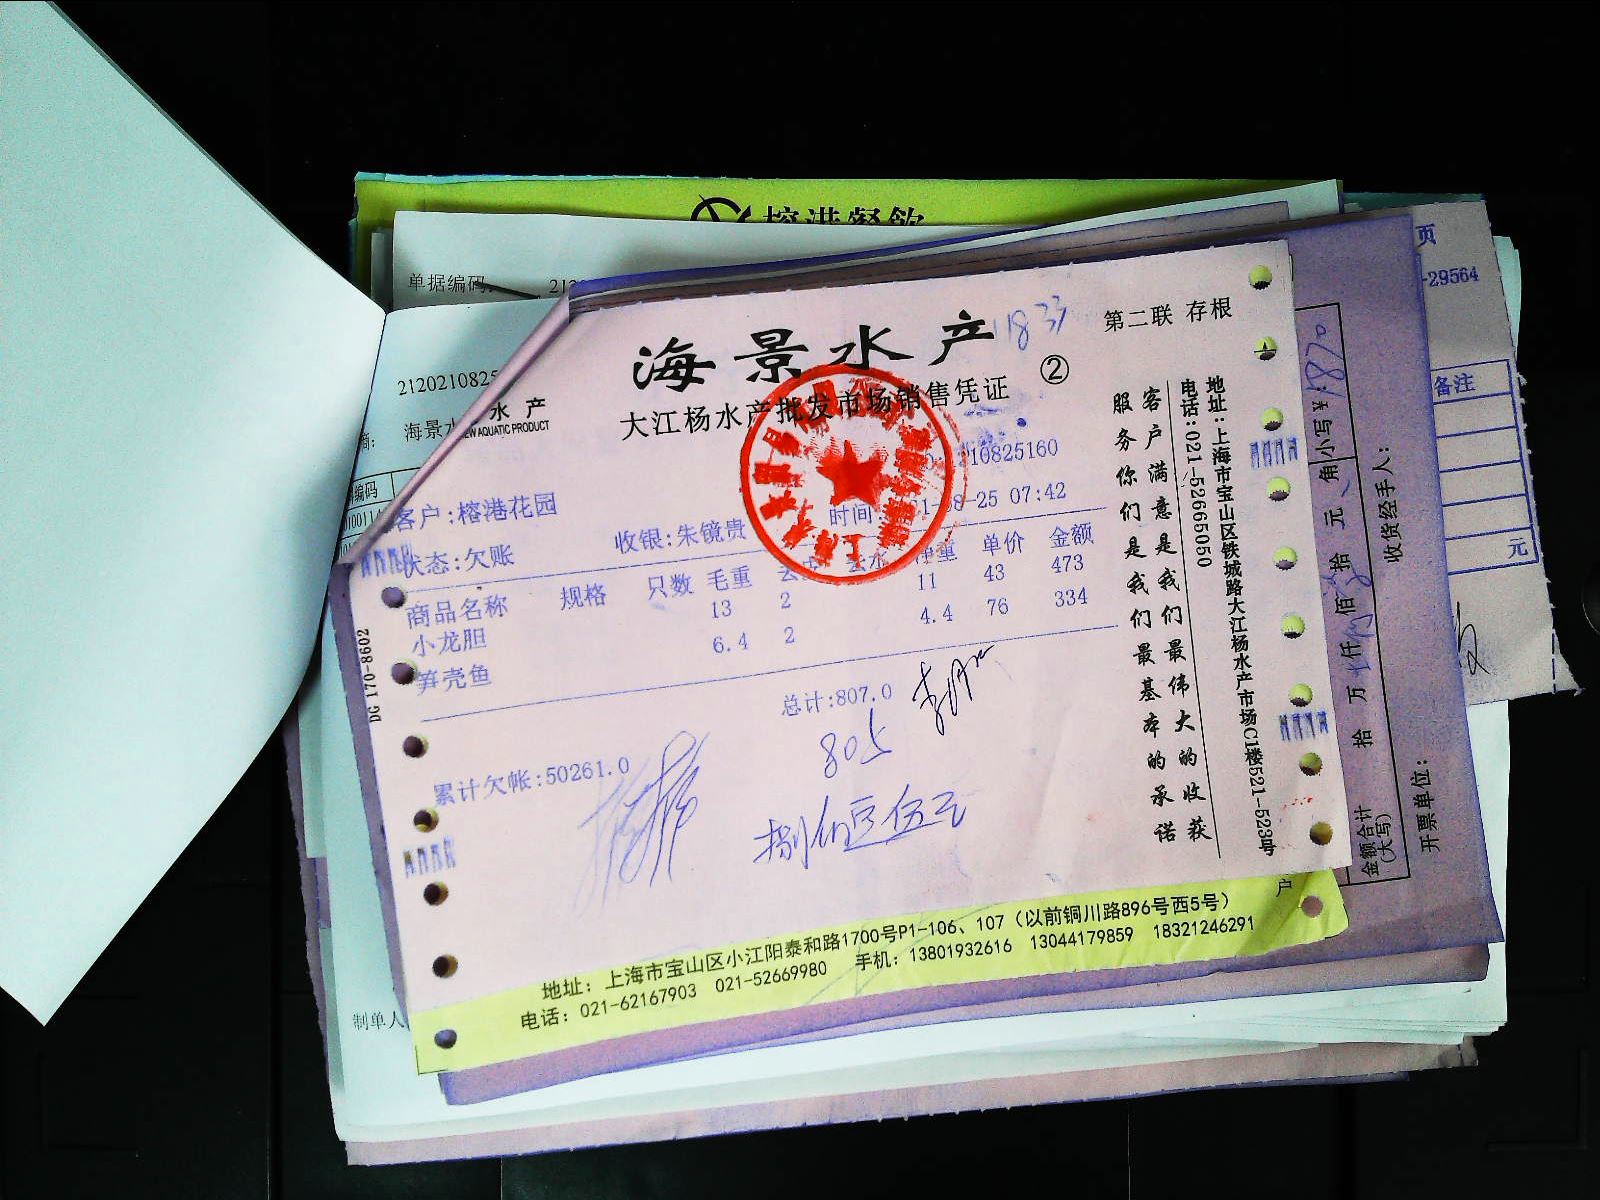 榕港餐饮
单据编码:
2120210825
海景水
水产
EW AQUATIC PRODUCT
编码
页
-29564
备注
元
海景水产
1833
第二联 存根
大江杨水产批发市场销售凭证
②
210825160
客户:榕港花园
收银:朱镜贵
时间
-25 07:42
状态:欠账
商品名称 规格 只数 毛重 净重 单价 金额
小龙胆 13 2 11 43 473
笋壳鱼 6.4 2 4.4 76 334
总计:807.0
805
累计欠帐:50261.0
捌佰零伍元
DG 170-8602
客户满意是我们最伟大的收获
服务你们是我们最基本的承诺
地址:上海市宝山区铁城路大江杨水产市场C1楼521-523号
电话:021-52665050
小写¥:1870
金额合计(大写) 拾 万 仟 佰 拾 元 角
收货经手人:
开票单位:
户
地址:上海市宝山区小江阳泰和路1700号P1-106、107(以前铜川路896号西5号)
电话:021-62167903 021-52669980 手机:13801932616 13044179859 18321246291
制单人